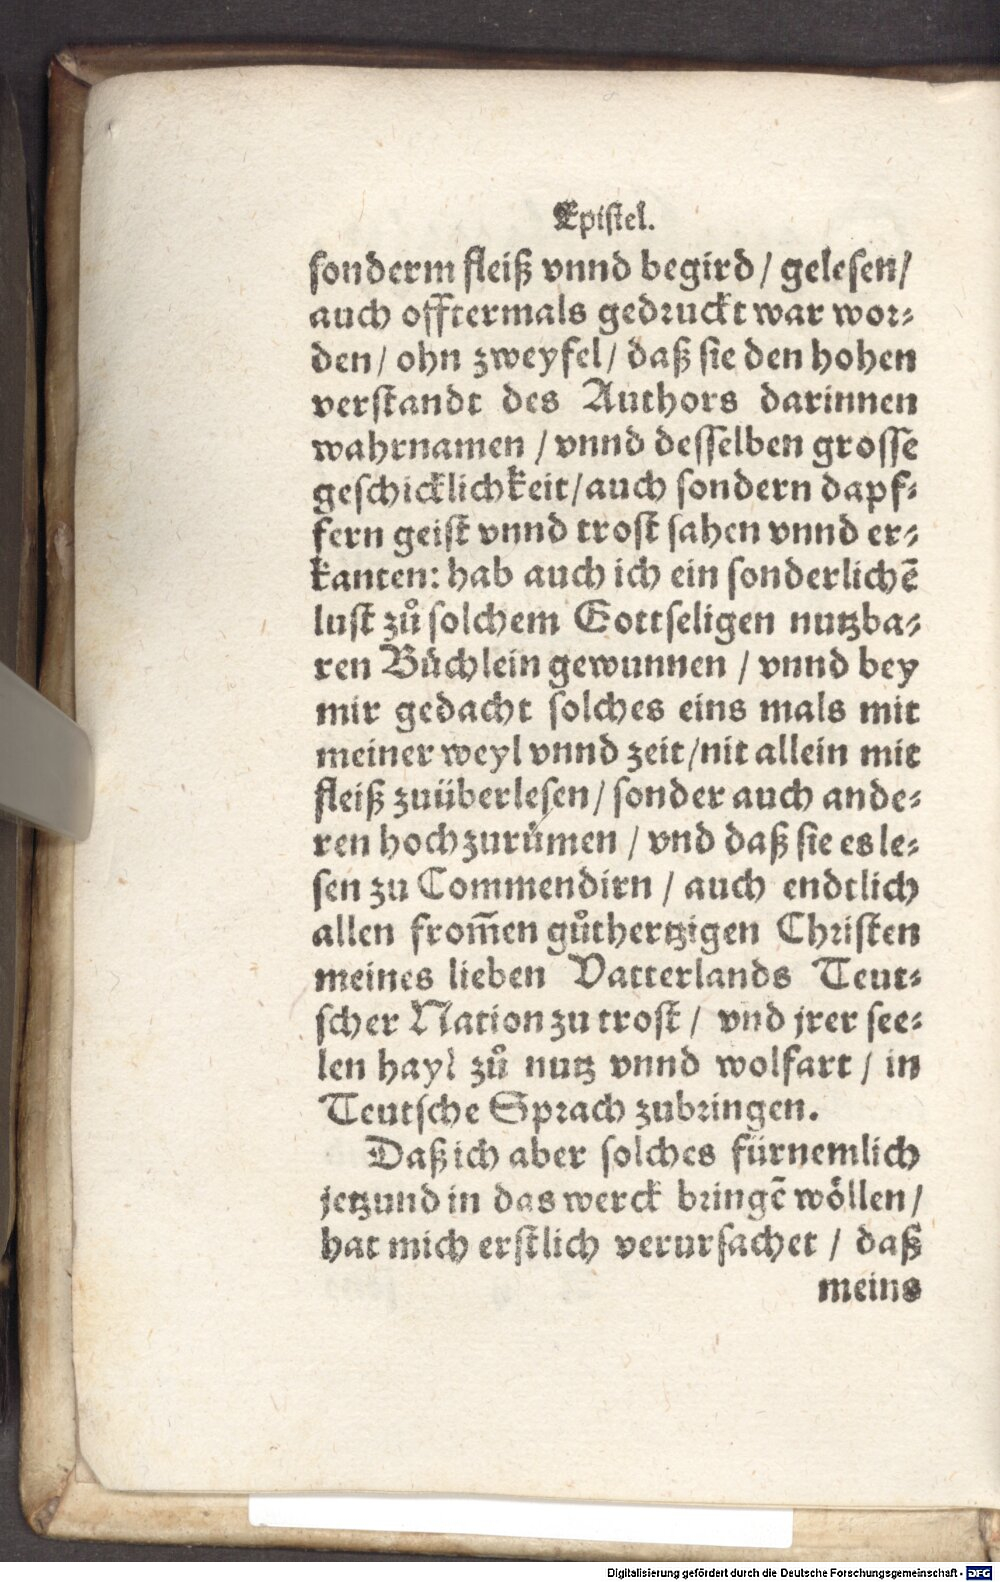 Epistel.
sonderm fleiß vnnd begird / gelesen /
auch offtermals gedruckt war wor⸗
den / ohn zweyfel / daß sie den hohen
verstandt des Authors darinnen
wahrnamen / vnnd desselben grosse
geschicklichkeit / auch sondern dapf⸗
fern geist vnnd trost sahen vnnd er⸗
kanten: hab auch ich ein sonderlichẽ
lust zů solchem Gottseligen nutzba⸗
ren Büchlein gewunnen / vnnd bey
mir gedacht solches eins mals mit
meiner weyl vnnd zeit / nit allein mit
fleiß zuüberlesen / sonder auch ande⸗
ren hochzurümen / vnd daß sie es le⸗
sen zu Commendirn / auch endtlich
allen from̃en gůthertzigen Christen
meines lieben Vatterlands Teut⸗
scher Nation zu trost / vnd jrer see⸗
len hayl zů nutz vnnd wolfart / in
Teutsche Sprach zubringen.
Daß ich aber solches fürnemlich
jetzund in das werck bringẽ wöllen /
hat mich erstlich verursachet / daß
meins
Digitalisierung gefördert durch die Deutsche Forschungsgemeinschaft - DFG